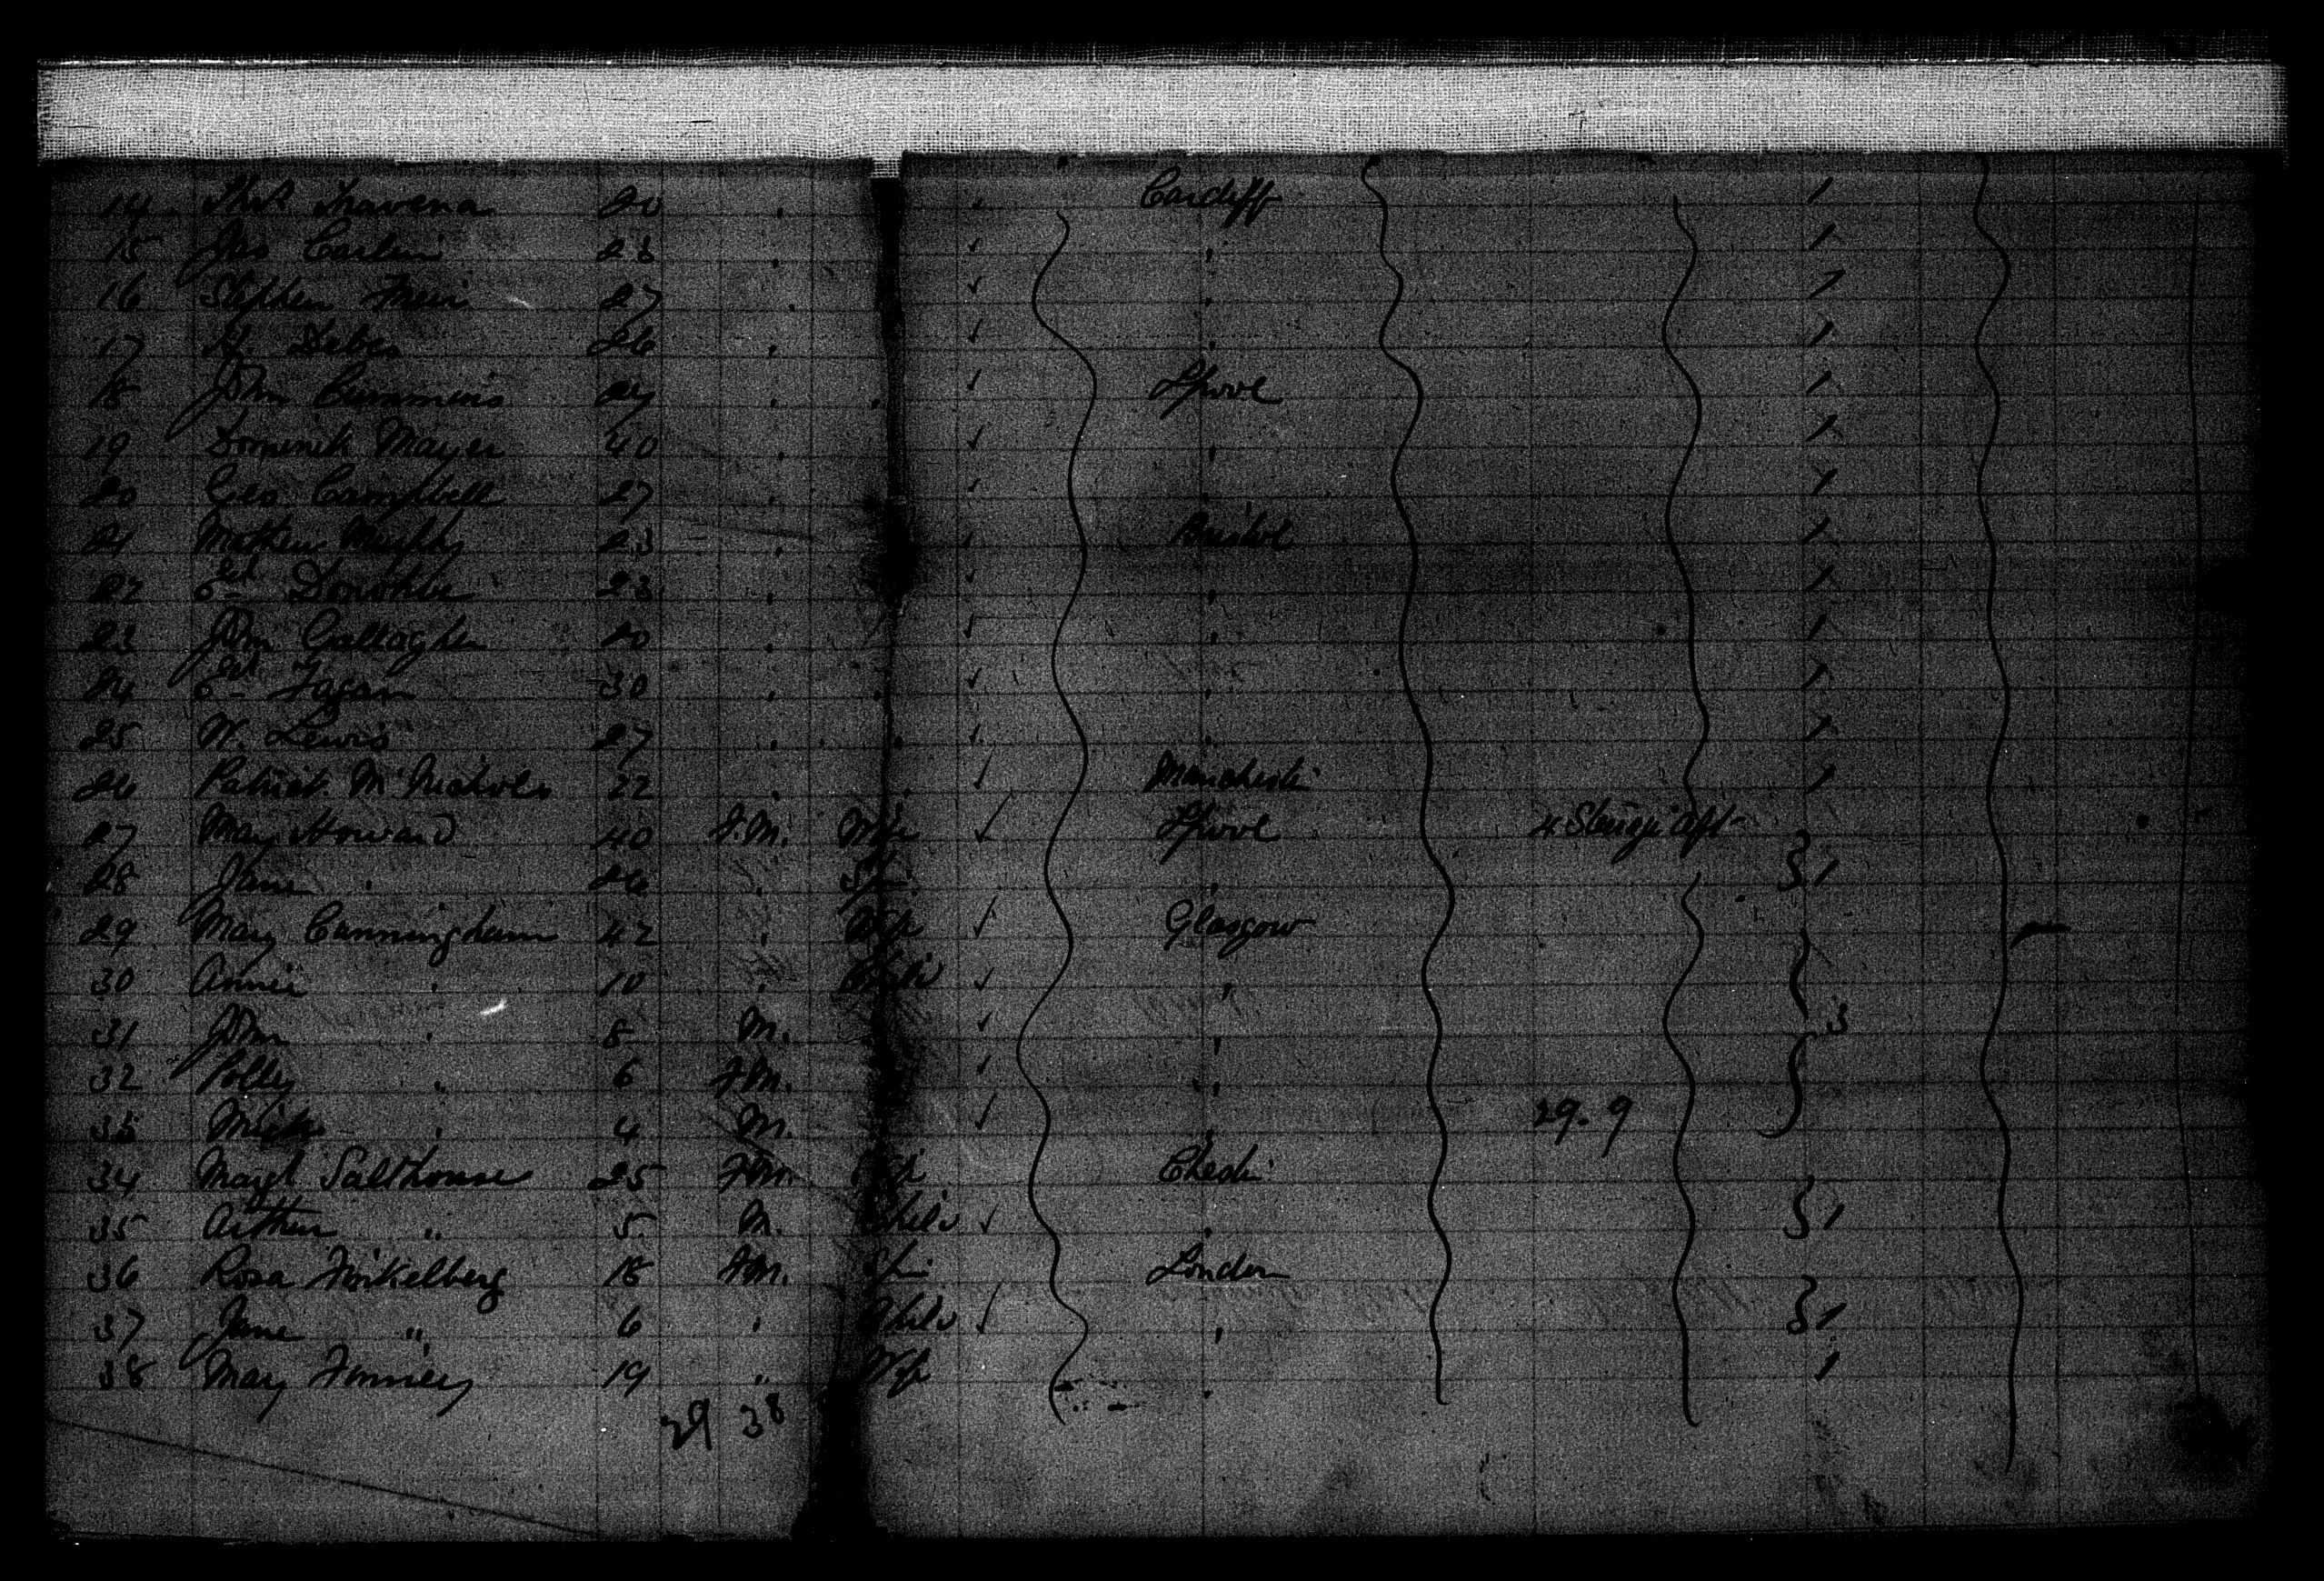 14 Thos. Travena 20 " Cardiff 1
15 Jas Carlin 23 " " 1
16 Stephen 27 " " 1
17 H. Debes 26 " " 1
18 John Cummins 24 " " L'pool 1
19 Dominick Mayer 40 " " 1
20 Geo. Campbell 27 " " 1
21 Mathew Murphy 23 " Bristol 1
22 Ed. Donohue 23 " " 1
23 John Callaghan 20 " " 1
24 Ed. Fagan 30 " " " 1
25 W. Lewis 27 " " " 1
26 Patrick McNichols 22 " " Manchester 1
27 Mary Howard 40 F.M. Wife L'pool 4. Steerage Aft
28 Jane " 26 " Spin. " 1
29 Mary Cunningham 42 " Wife Glasgow
30 Annie " 10 " Child "
31 John " 8 M. " 3
32 Polly " 6 F.M. "
33 Mick " 4 M. " 29.9
34 Margt. Salthouse 25 F.M. Wife Chester
35 Arthur " 5 M. Child " 1
36 Rosa Finkelberg 18 F.M. Spin London
37 Jane " 6 " Child " 1
38 Mary Finney 19 " Wife " 1
29 38